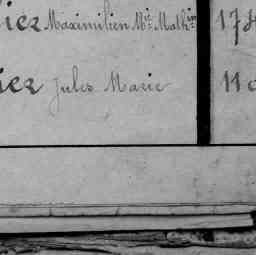 iez Maximilien Mie Mathin 178
iez Jules Marie 110